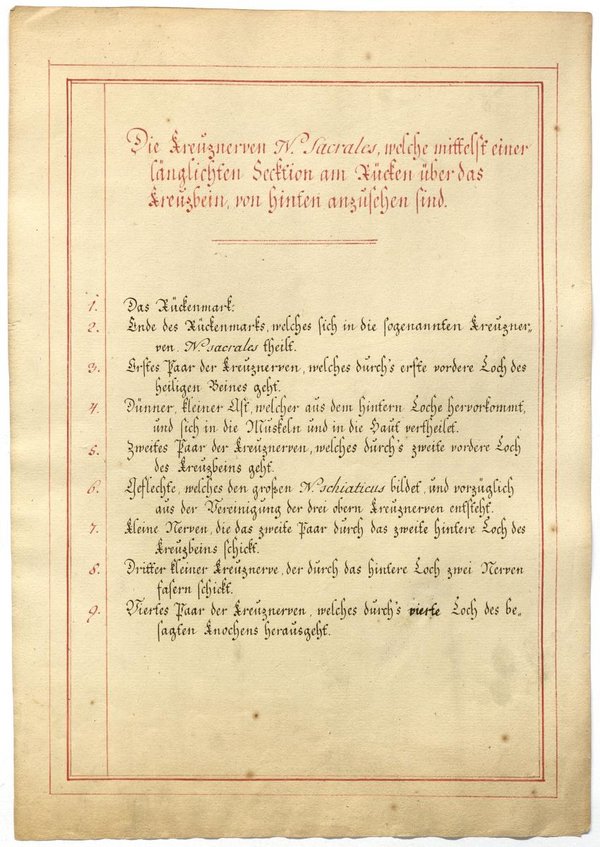 Die Kreuznerven N. Sacrales, welche mittelst einer
länglichten Secktion am Rücken über das
Kreuzbein, von hinten anzusehen sind.
1. Das Rückenmark.
2. Ende des Rückenmarks, welches sich in die sogenannten Kreuzner-
ven N. sacrales theilt.
3. Erstes Paar der Kreuznerven, welches durch's erste vordere Loch des
heiligen Beines geht.
4. Dünner, kleiner Ast, welcher aus dem hintern Loche hervorkommt,
und sich in die Muskeln und in die Haut vertheilet.
5. Zweites Paar der Kreuznerven, welches durch's zweite vordere Loch
des Kreuzbeins geht.
6. Geflechte, welches den großen N. schiaticus bildet, und vorzüglich
aus der Vereinigung der drei obern Kreuznerven entsteht.
7. Kleine Nerven, die das zweite Paar durch das zweite hintere Loch des
Kreuzbeins schickt.
8. Dritter kleiner Kreuznerve, der durch das hintere Loch zwei Nerven
fasern schickt.
9. Viertes Paar der Kreuznerven, welches durch's vierte Loch des be-
sagten Knochens herausgeht.